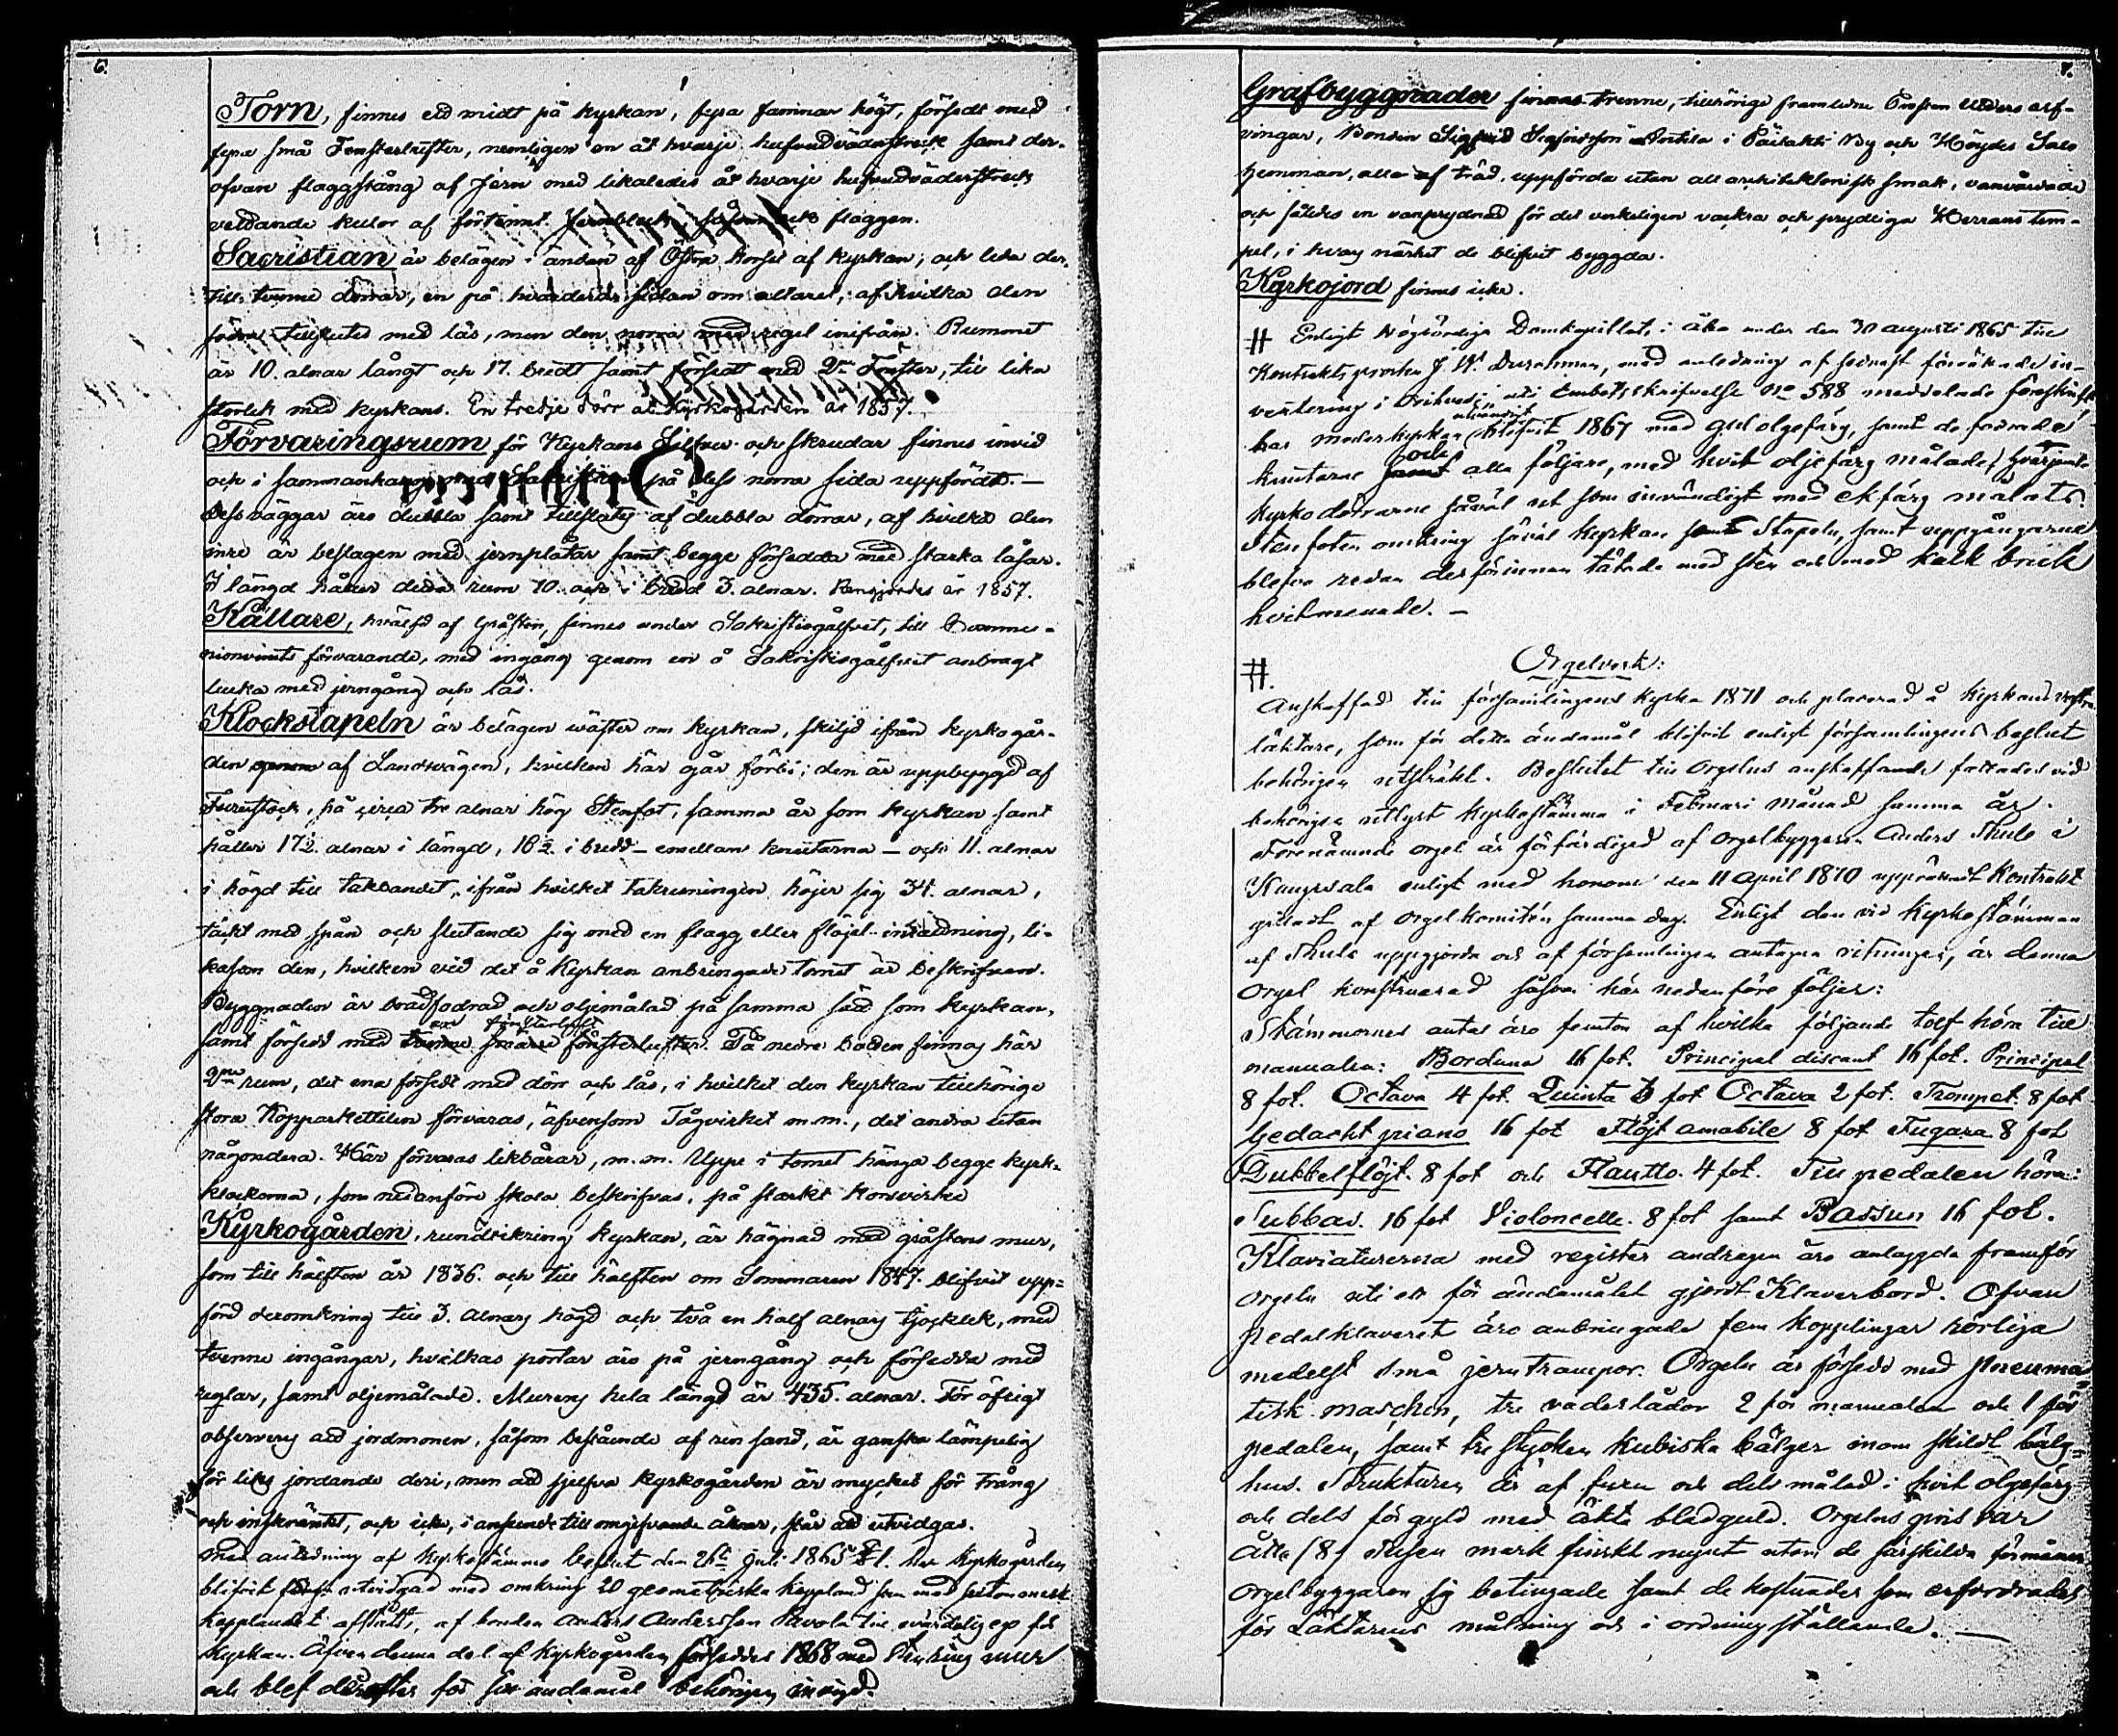 6.
Torn, finnes ett midt på kyrkan, fyra famnar högt, försedt med
fyra små Fensterlufter, nemligen en åt hvarje hufvudväderstreck samt der-
ofvan flaggstång af jern med likaledes åt hvarje hufvudväderstreck
vettande kulor af förtennt Jernbleck flaggen.
Sacristian är belägen i ändan af Östra korset af kyrkan, och leda der-
till tvenne dörrar, en på hvardera sidan om altaret, af hvilka den
södra tillslutes med lås, men den norra med regel inifrån. Rummet
är 10. alnar långt och 17. bredt samt försedt med 2ne Fönster, till lika
storlek med kyrkans. En tredje dörr åt Kyrkogården år 1857.
Förvaringsrum för Kyrkans Silfver och skrudar finnes invid
och i sammanhang med Sakristian på dess norra sida uppfördt.—
Dess väggar äro dubbla samt tillslutes af dubbla dörrar, af hvilka den
inre är beslagen med jernplåtar samt begge försedda med starka låsar.
I längd håller detta rum 10. och i bredd 3. alnar. Rengjordes år 1857.
Källare, hvälfd af gråsten, finnes under Sakristiegålfvet, till Commu-
nionvinets förvarande, med ingång genom en å Sakristiegålfvet anbragt
lucka med jerngång och lås.
Klockstapeln är belägen väster om kyrkan, skiljd ifrån kyrkogår-
den genom af Landsvägen, hvilken här går förbi; den är uppbyggd af
Furustock, på circa tre alnar hög Stenfot, samma år som kyrkan samt
håller 17½. alnar i längd, 16½. i bredd – emellan knutarna – och 11. alnar
i högd till takbandet, ifrån hvilket takresningen höjer sig 34. alnar,
täckt med spån och slutande sig med en flagg eller flöjel-inrättning, li-
kasom den, hvilken vid det å Kyrkan anbringade tornet är beskrifven.
Byggnaden är brädfodrad och oljemålad på samma sätt som kyrkan,
en fönsterluft
samt försedd med tvenne smärre fönsterlufter. På nedra botten finnas här
2ne rum, det ena försedt med dörr och lås, i hvilket den kyrkan tillhörige
stora Kopparkettilen förvaras, äfvensom Tågvirket m.m., det andra utan
någondera. Här förvaras likbårar, m.m. Uppe i tornet hänga begge kyrk-
klockorna, som nedanföre skola beskrifvas, på starkt korsvirke
Kyrkogården, rundtikring kyrkan, är hägnad med gråstens mur,
som till hälften år 1836. och till hälften om Sommaren 1847. blifvit upp-
förd deromkring till 3. alnars högd och två en half alnars tjocklek, med
tvenne ingångar, hvilkas portar äro på jerngång och försedda med
reglar, samt oljemålade. Murens hela längd är 435. alnar. För öfrigt
observeras att jordmonen, såsom bestående af ren sand, är ganska lämpelig
för liks jordande deri, men att sjelfva kyrkogården är mycket för trång
och inskränkt, och icke, i anseende till omgifvande åkrar, står att utvidgas.
Med anledning af Kyrkostämmo beslut den 26te Juli 1865 § 1. har Kyrkogården
blifvit utvidgad med omkring 20 geometriska kappland
kapplandet afstått, af bonden Anders Andersson Kavola till evärdelig ego för
Kyrkan. Äfven denna del af Kyrkogården försedes 1868 med stenring mur
och blef derefter för sitt ändamål behörigen invigd.
7.
Grafbyggnader finnas trenne, tillhörige framledne Anders arf-
vingar, Bonden Sigfrid Sigfridsson Penttila i by och Höydes Salo
hemman, alla af träd, uppförda utan all arkitektonisk smak, vanvårdade
och således en vanprydnad för det verkeligen vackra och prydliga Herrans tem-
pel, i hvars närhet de blifvit byggda.
Kyrkojord finnes icke.
# Enligt Högvördiga Domkapitlet i Åbo under den 30 augusti 1865 till
Kontrakts prosten J. W. Durchman, med anledning af sednast förrättade in-
ventering i Orihvesi, uti Embetsskrifvelse No 588 meddelade föreskrift
utvändigt
har moderkyrkan blifvit 1867 med gul oljefärg, samt de fodrade
och
knutarne samt alla följare, med hvit oljefärg målade, hvarjemte
kyrkodörrarne såväl ut som invändigt med ekfärg målats.
Stenfoten omkring såväl kyrkan som Stapeln, samt uppgångarne
blefvo redan derförinnan tätade med sten och med kalk bruk
hvitmenade. –
Orgelverk:
#.
Anskaffad till församlingens kyrka 1871 och placerad å kyrkans vestra
läktare, som för detta ändamål blifvit enligt församlingens beslut
behörigen utsträkt. Beslutet till Orgelns anskaffande fattades vid
behörigen utlyst kyrkostämma i Februari månad samma år.
Förenämnde orgel är förfärdigad af Orgelbyggaren Anders Thule i
Kangasala enligt med honom den 11 April 1870 upprättadt Kontrakt
gilladt af Orgel komitén samma dag. Enligt den vid Kyrkostämman
af Thule uppgjorda och af församlingen antagna ritningen, är denna
Orgel konstruerad såsom här nedanföre följer:
Stämmornas antal äro femton af hvilka följande tolf höra till
manualen: Borduna 16 fot. Principal discant 16 fot. Principal
8 fot. Octava 4 fot. Quinta 3 fot Octava 2 fot. Trompet. 8 fot
Gedackt piano 16 fot Flöjt amabile 8 fot Fugara 8 fot
Dubbelflöjt. 8 fot och Flautto. 4 fot. Till pedalen höra:
Subbas. 16 fot Violoncelle. 8 fot samt Bassun 16 fot.
Klaviaturerna med register andragen äro anlaggda framför
orgeln uti ett för ändamålet gjordt Klaverbord. Ofvan
pedalklaveret äro anbringade fem kopplingar rörliga
medelst små jerntrampor. Orgeln är försedd med pneuma-
tisk maschin, tre väderlådor 2 för manualen och 1 för
pedalen, samt tre stycken kubiska bälger inom skildt bälg-
hus. Strukturen är af furu och dels målad i hvit oljefärg
och dels förgyld med äkta bladguld. Orgelns pris var
Åtta (8) tusen mark finskt mynt utom de särskilda förmåner
Orgelbyggaren sig betingade samt de kostnader som erfordrades
för Läktarens målning och i ordning ställande. —